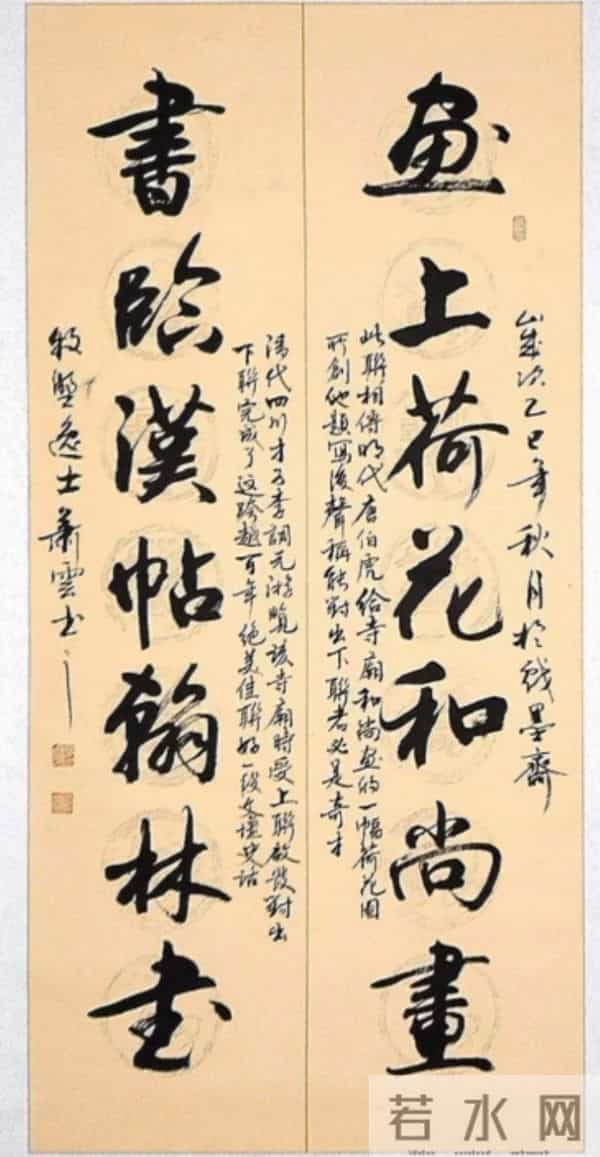 歲次乙巳年秋月於墨齋
画上荷花和尚畫
此聯相傳明代唐伯虎給寺廟和尚画的一幅荷花图
所創他題寫後聲稱能對出下聯者必是奇才
清代四川才子李調元游覽該寺廟時受上聯啟發對出
下聯完成了這跨越百年絕美佳聯好一段文壇史話
書臨漢帖翰林书
牧逸士蕭雲书
若水网